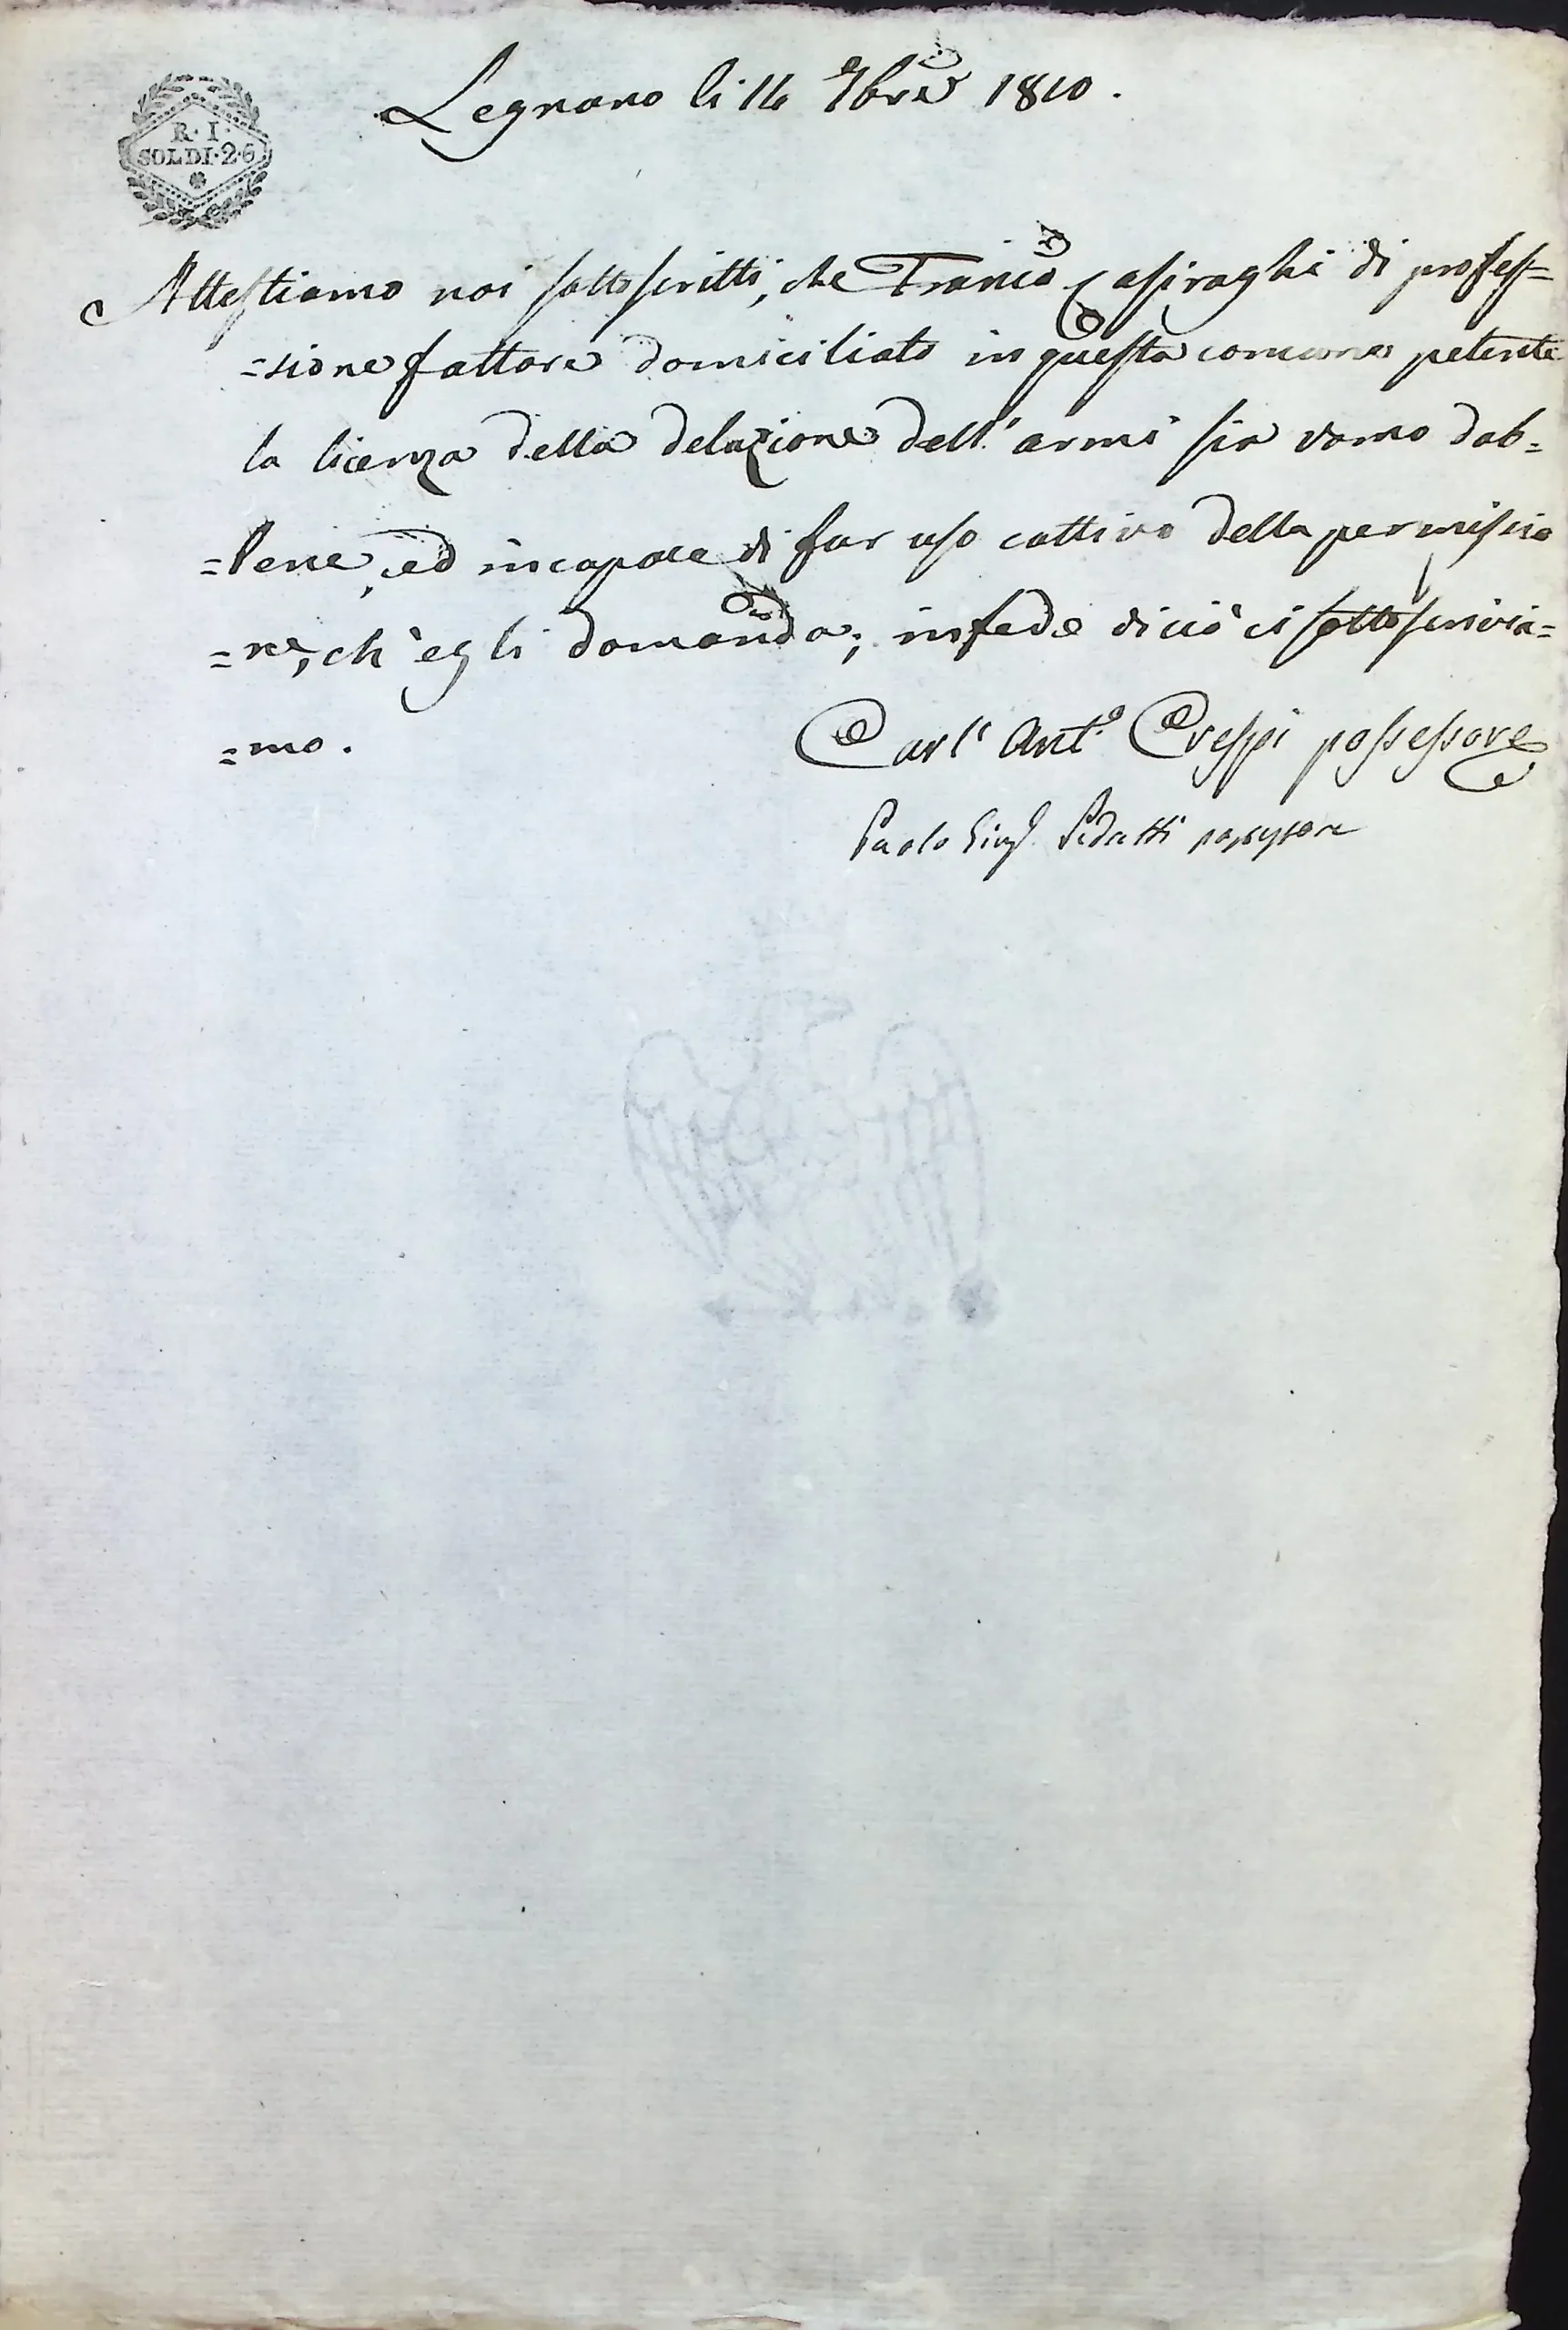 Legnano li 14 7bre 1810.
R. I.
SOLDI. 2. 6
Attestiamo noi sottoscritti, che Franco Casiraghi di profes=
=sione fattore domiciliato in questa comune petente
la licenza della delazione dell' armi sia uomo dab=
=bene, ed incapace di far uso cattivo della permissio
=ne, ch' egli domanda; in fede di ciò ci sottoscrivia=
=mo.
Carl' Ant.o Crespi possessore
Paolo possessore